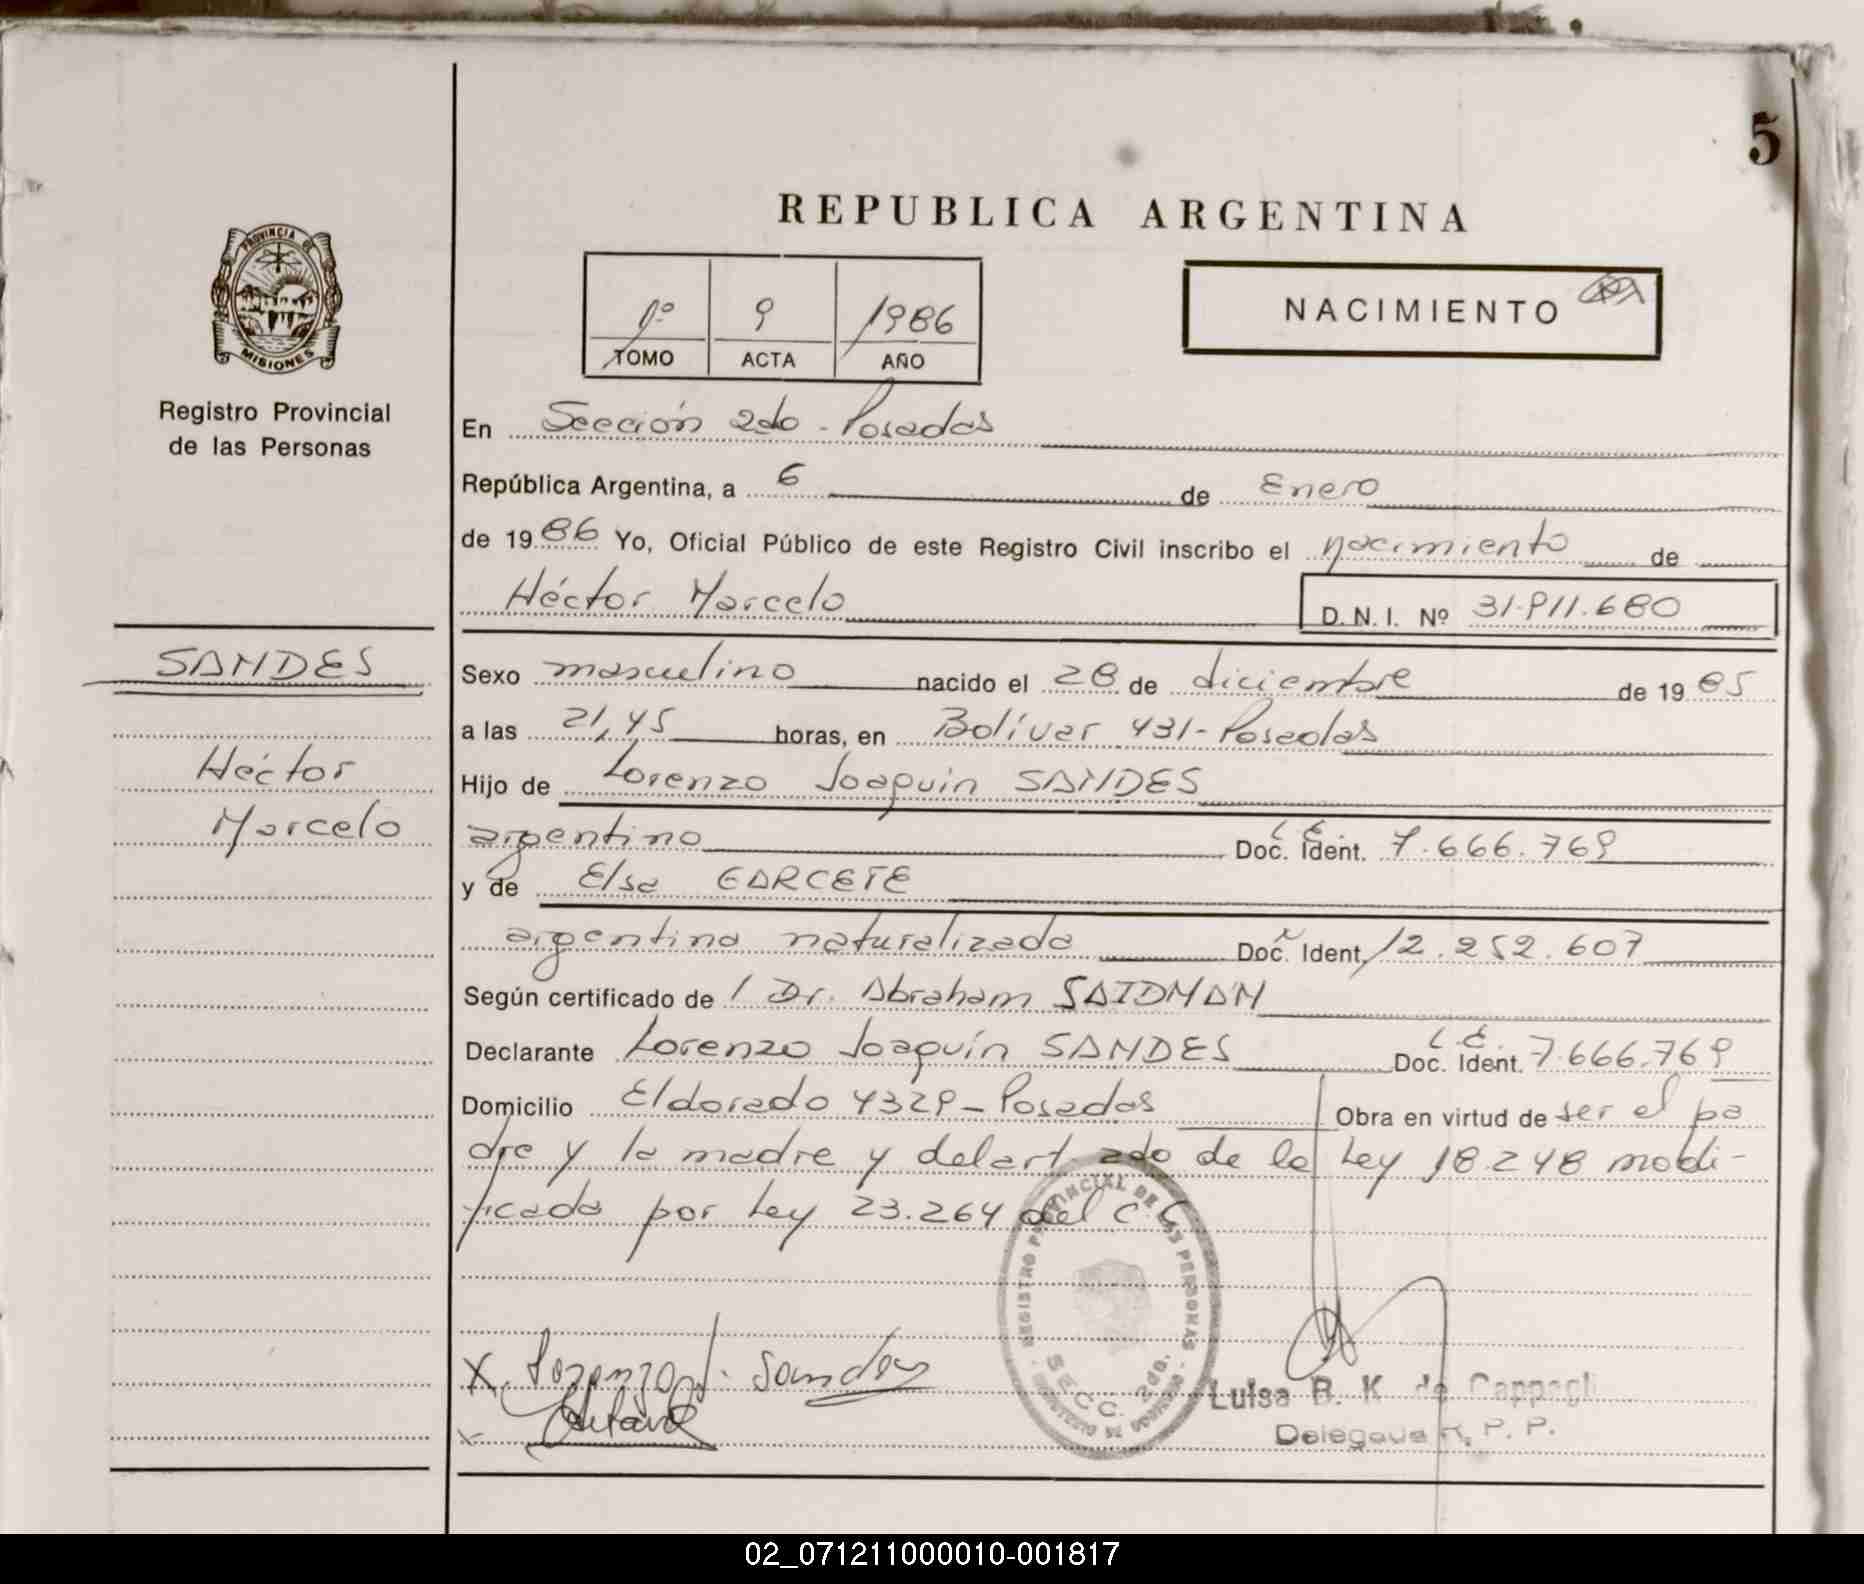 5
REPUBLICA ARGENTINA
PROVINCIA DE
MISIONES
Registro Provincial
de las Personas
1º 9 1986
TOMO ACTA AÑO
NACIMIENTO
En Sección 2do - Posadas
República Argentina, a 6 de Enero
de 1986 Yo, Oficial Público de este Registro Civil inscribo el nacimiento de
Héctor Marcelo D. N. I. Nº 31.911.680
SANDES
Héctor
Marcelo
Sexo masculino nacido el 28 de diciembre de 1985
a las 21,45 horas, en Bolívar 431 - Posadas
Hijo de Lorenzo Joaquín SANDES
argentino L E Doc. Ident. 7.666.769
y de Elsa GARCETE
argentina naturalizada Doc. Ident. 12.252.607
Según certificado de Dr. Abraham SAIDMAN
Declarante Lorenzo Joaquín SANDES L.E. Doc. Ident. 7.666.769
Domicilio Eldorado 4329 - Posadas Obra en virtud de ser el pa
dre y la madre y del art. 2do de la Ley 18.248 modi-
ficada por Ley 23.264 del C.C
REGISTRO PROVINCIAL DE LAS PERSONAS
SECC. 2da.
X Lorenzo J. Sandes
Luisa B. K. de Cappagli
Delegada R. P. P.
02_071211000010-001817